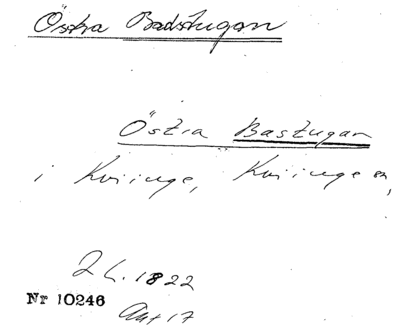 Östra Badstugan
Östra Bastugan
i Kviinge, Kviinge sn,
2 L. 1822
Nr 10246
Akt 17